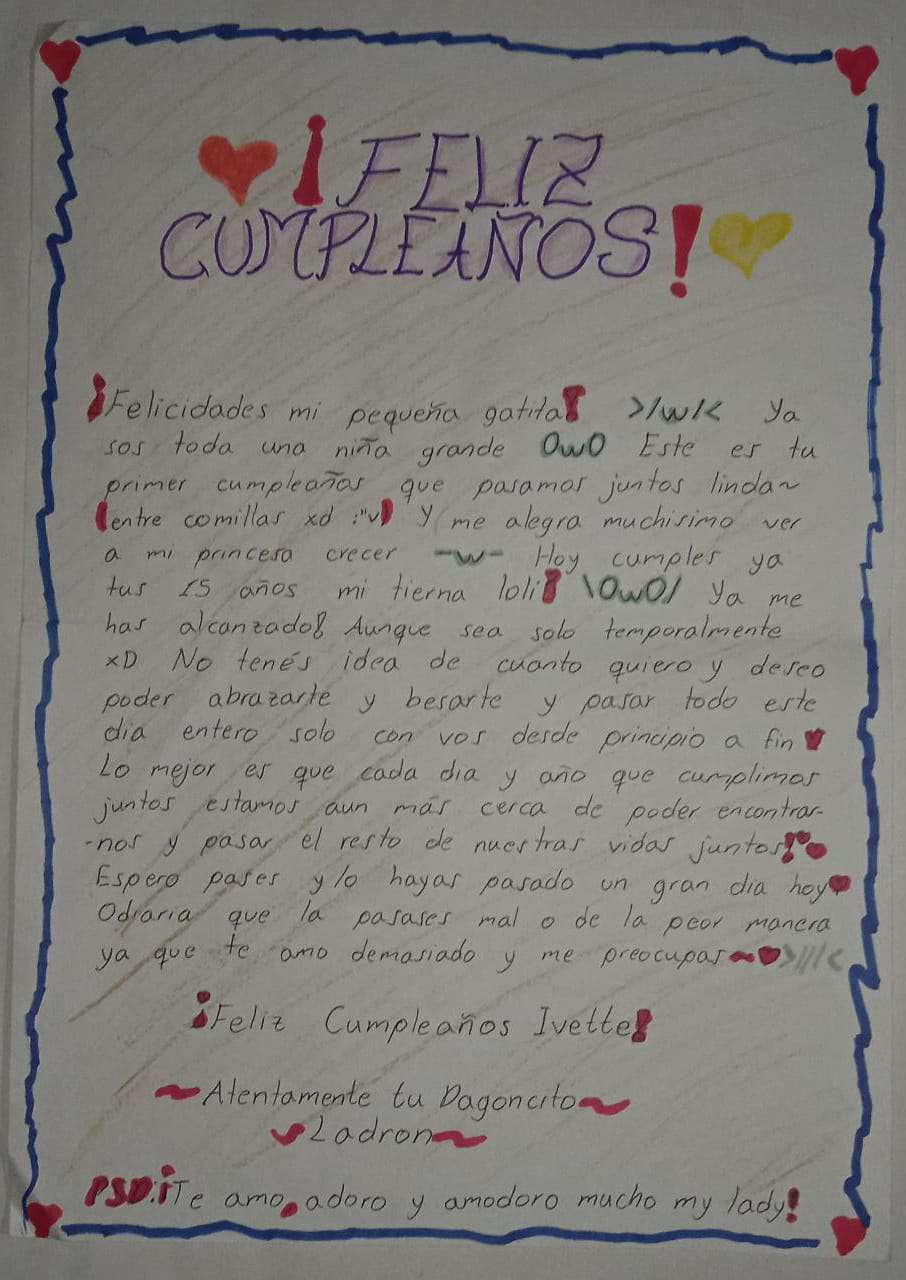 ¡FELIZ
CUMPLEAÑOS!
¡Felicidades mi pequeña gatita! >/w/< Ya
sos toda una niña grande OwO Este es tu
primer cumpleaños que pasamos juntos linda~
(entre comillas xd :"v) Y me alegra muchisimo ver
a mi princesa crecer -w- Hoy cumples ya
tus 15 años mi tierna loli! \OwO/ Ya me
has alcanzado! Aunque sea solo temporalmente
xD No tenés idea de cuanto quiero y deseo
poder abrazarte y besarte y pasar todo este
dia entero solo con vos desde principio a fin
Lo mejor es que cada dia y año que cumplimos
juntos estamos aun más cerca de poder encontrar-
-nos y pasar el resto de nuestras vidas juntos!
Espero pases y/o hayas pasado un gran dia hoy
Odiaria que la pasases mal o de la peor manera
ya que te amo demasiado y me preocupas~ >///<
¡Feliz Cumpleaños Ivette!
~Atentamente tu Dagoncito~
~Ladron~
PSD:¡Te amo, adoro y amodoro mucho my lady!